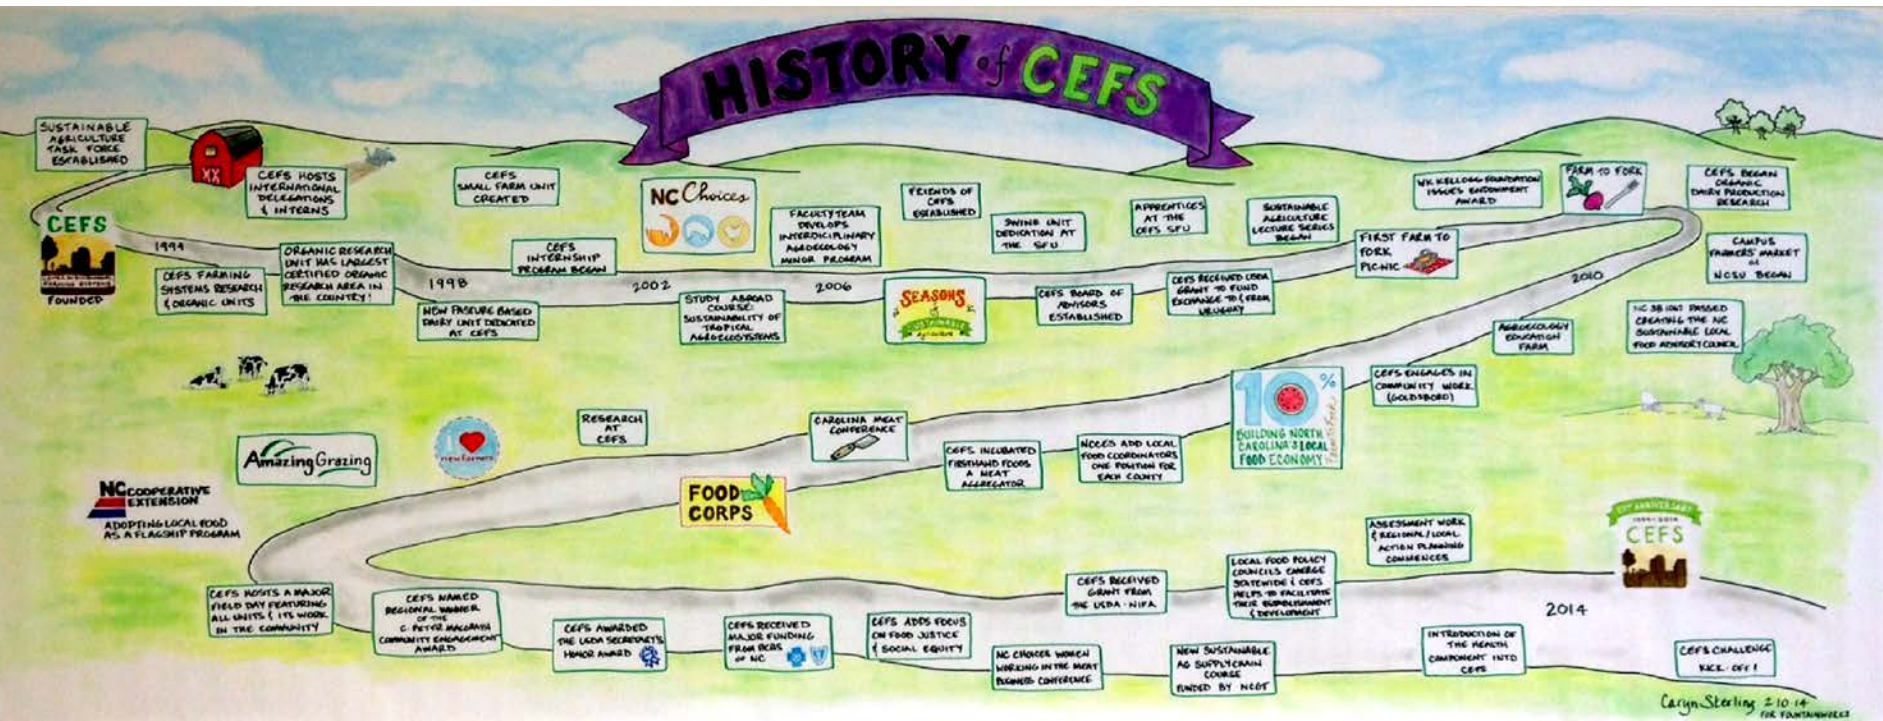 HISTORY of CEFS
SUSTAINABLE
AGRICULTURE
TASK FORCE
ESTABLISHED
CEFS
FOUNDED
1994
CEFS HOSTS
INTERNATIONAL
DELEGATIONS
& INTERNS
CEFS FARMING
SYSTEMS RESEARCH
& ORGANIC UNITS
ORGANIC RESEARCH
UNIT HAS LARGEST
CERTIFIED ORGANIC
RESEARCH AREA IN
THE COUNTRY!
1998
NEW PASTURE BASED
DAIRY UNIT DEDICATED
AT CEFS
CEFS
SMALL FARM UNIT
CREATED
CEFS
INTERNSHIP
PROGRAM BEGAN
NC Choices
2002
STUDY ABROAD
COURSE:
SUSTAINABILITY OF
TROPICAL
AGROECOSYSTEMS
FACULTY TEAM
DEVELOPS
INTERDICIPLINARY
AGROECOLOGY
MINOR PROGRAM
2006
FRIENDS OF
CEFS
ESTABLISHED
SEASONS
of
SUSTAINABLE
Agriculture
SWINE UNIT
DEDICATION AT
THE SFU
CEFS BOARD OF
ADVISORS
ESTABLISHED
APPRENTICES
AT THE
CEFS SFU
CEFS RECEIVED USDA
GRANT TO FUND
EXCHANGE TO & FROM
URUGUAY
SUSTAINABLE
AGRICULTURE
LECTURE SERIES
BEGAN
FIRST FARM TO
FORK
PICNIC
WK KELLOGG FOUNDATION
ISSUES ENDOWMENT
AWARD
FARM TO FORK
CEFS BEGAN
ORGANIC
DAIRY PRODUCTION
RESEARCH
CAMPUS
FARMERS' MARKET
at
NCSU BEGAN
2010
NC SB 1067 PASSED
CREATING THE NC
SUSTAINABLE LOCAL
FOOD ADVISORY COUNCIL
AGROECOLOGY
EDUCATION
FARM
CEFS ENGAGES IN
COMMUNITY WORK
(GOLDSBORO)
10%
BUILDING NORTH
CAROLINA'S LOCAL
FOOD ECONOMY
NCCES ADD LOCAL
FOOD COORDINATORS
ONE POSITION FOR
EACH COUNTY
CEFS INCUBATED
FIRSTHAND FOODS
A MEAT
AGGREGATOR
CAROLINA MEAT
CONFERENCE
FOOD
CORPS
RESEARCH
AT
CEFS
I
new farmers
Amazing Grazing
NC COOPERATIVE
EXTENSION
ADOPTING LOCAL FOOD
AS A FLAGSHIP PROGRAM
CEFS HOSTS A MAJOR
FIELD DAY FEATURING
ALL UNITS & ITS WORK
IN THE COMMUNITY
CEFS NAMED
REGIONAL WINNER
OF THE
C. PETER MAGRATH
COMMUNITY ENGAGEMENT
AWARD
CEFS AWARDED
THE USDA SECRETARY'S
HONOR AWARD
CEFS RECEIVED
MAJOR FUNDING
FROM BCBS
OF NC
CEFS ADDS FOCUS
ON FOOD JUSTICE
& SOCIAL EQUITY
NC CHOICES WOMEN
WORKING IN THE MEAT
BUSINESS CONFERENCE
CEFS RECEIVED
GRANT FROM
THE USDA-NIFA
NEW SUSTAINABLE
AG SUPPLYCHAIN
COURSE
FUNDED BY NCGT
LOCAL FOOD POLICY
COUNCILS EMERGE
STATEWIDE & CEFS
HELPS TO FACILITATE
THEIR ESTABLISHMENT
& DEVELOPMENT
ASSESSMENT WORK
& REGIONAL/LOCAL
ACTION PLANNING
COMMENCES
INTRODUCTION OF
THE HEALTH
COMPONENT INTO
CEFS
2014
20TH ANNIVERSARY
1994-2014
CEFS
CEFS CHALLENGE
KICK-OFF!
Caryn Sterling 2·10·14
FOR FOUNTAINWORKS